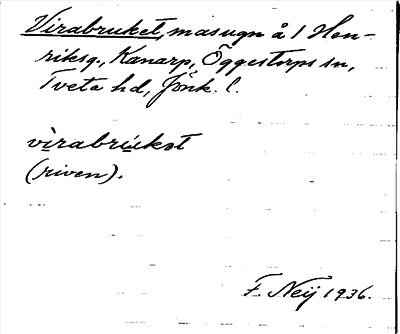 Virabruket, masugn å 1 Hen-
riksg., Kanarp, Öggestorps sn,
Tveta hd, Jönk. l.
vìrabrùkət
(riven).
F. Neij 1936.